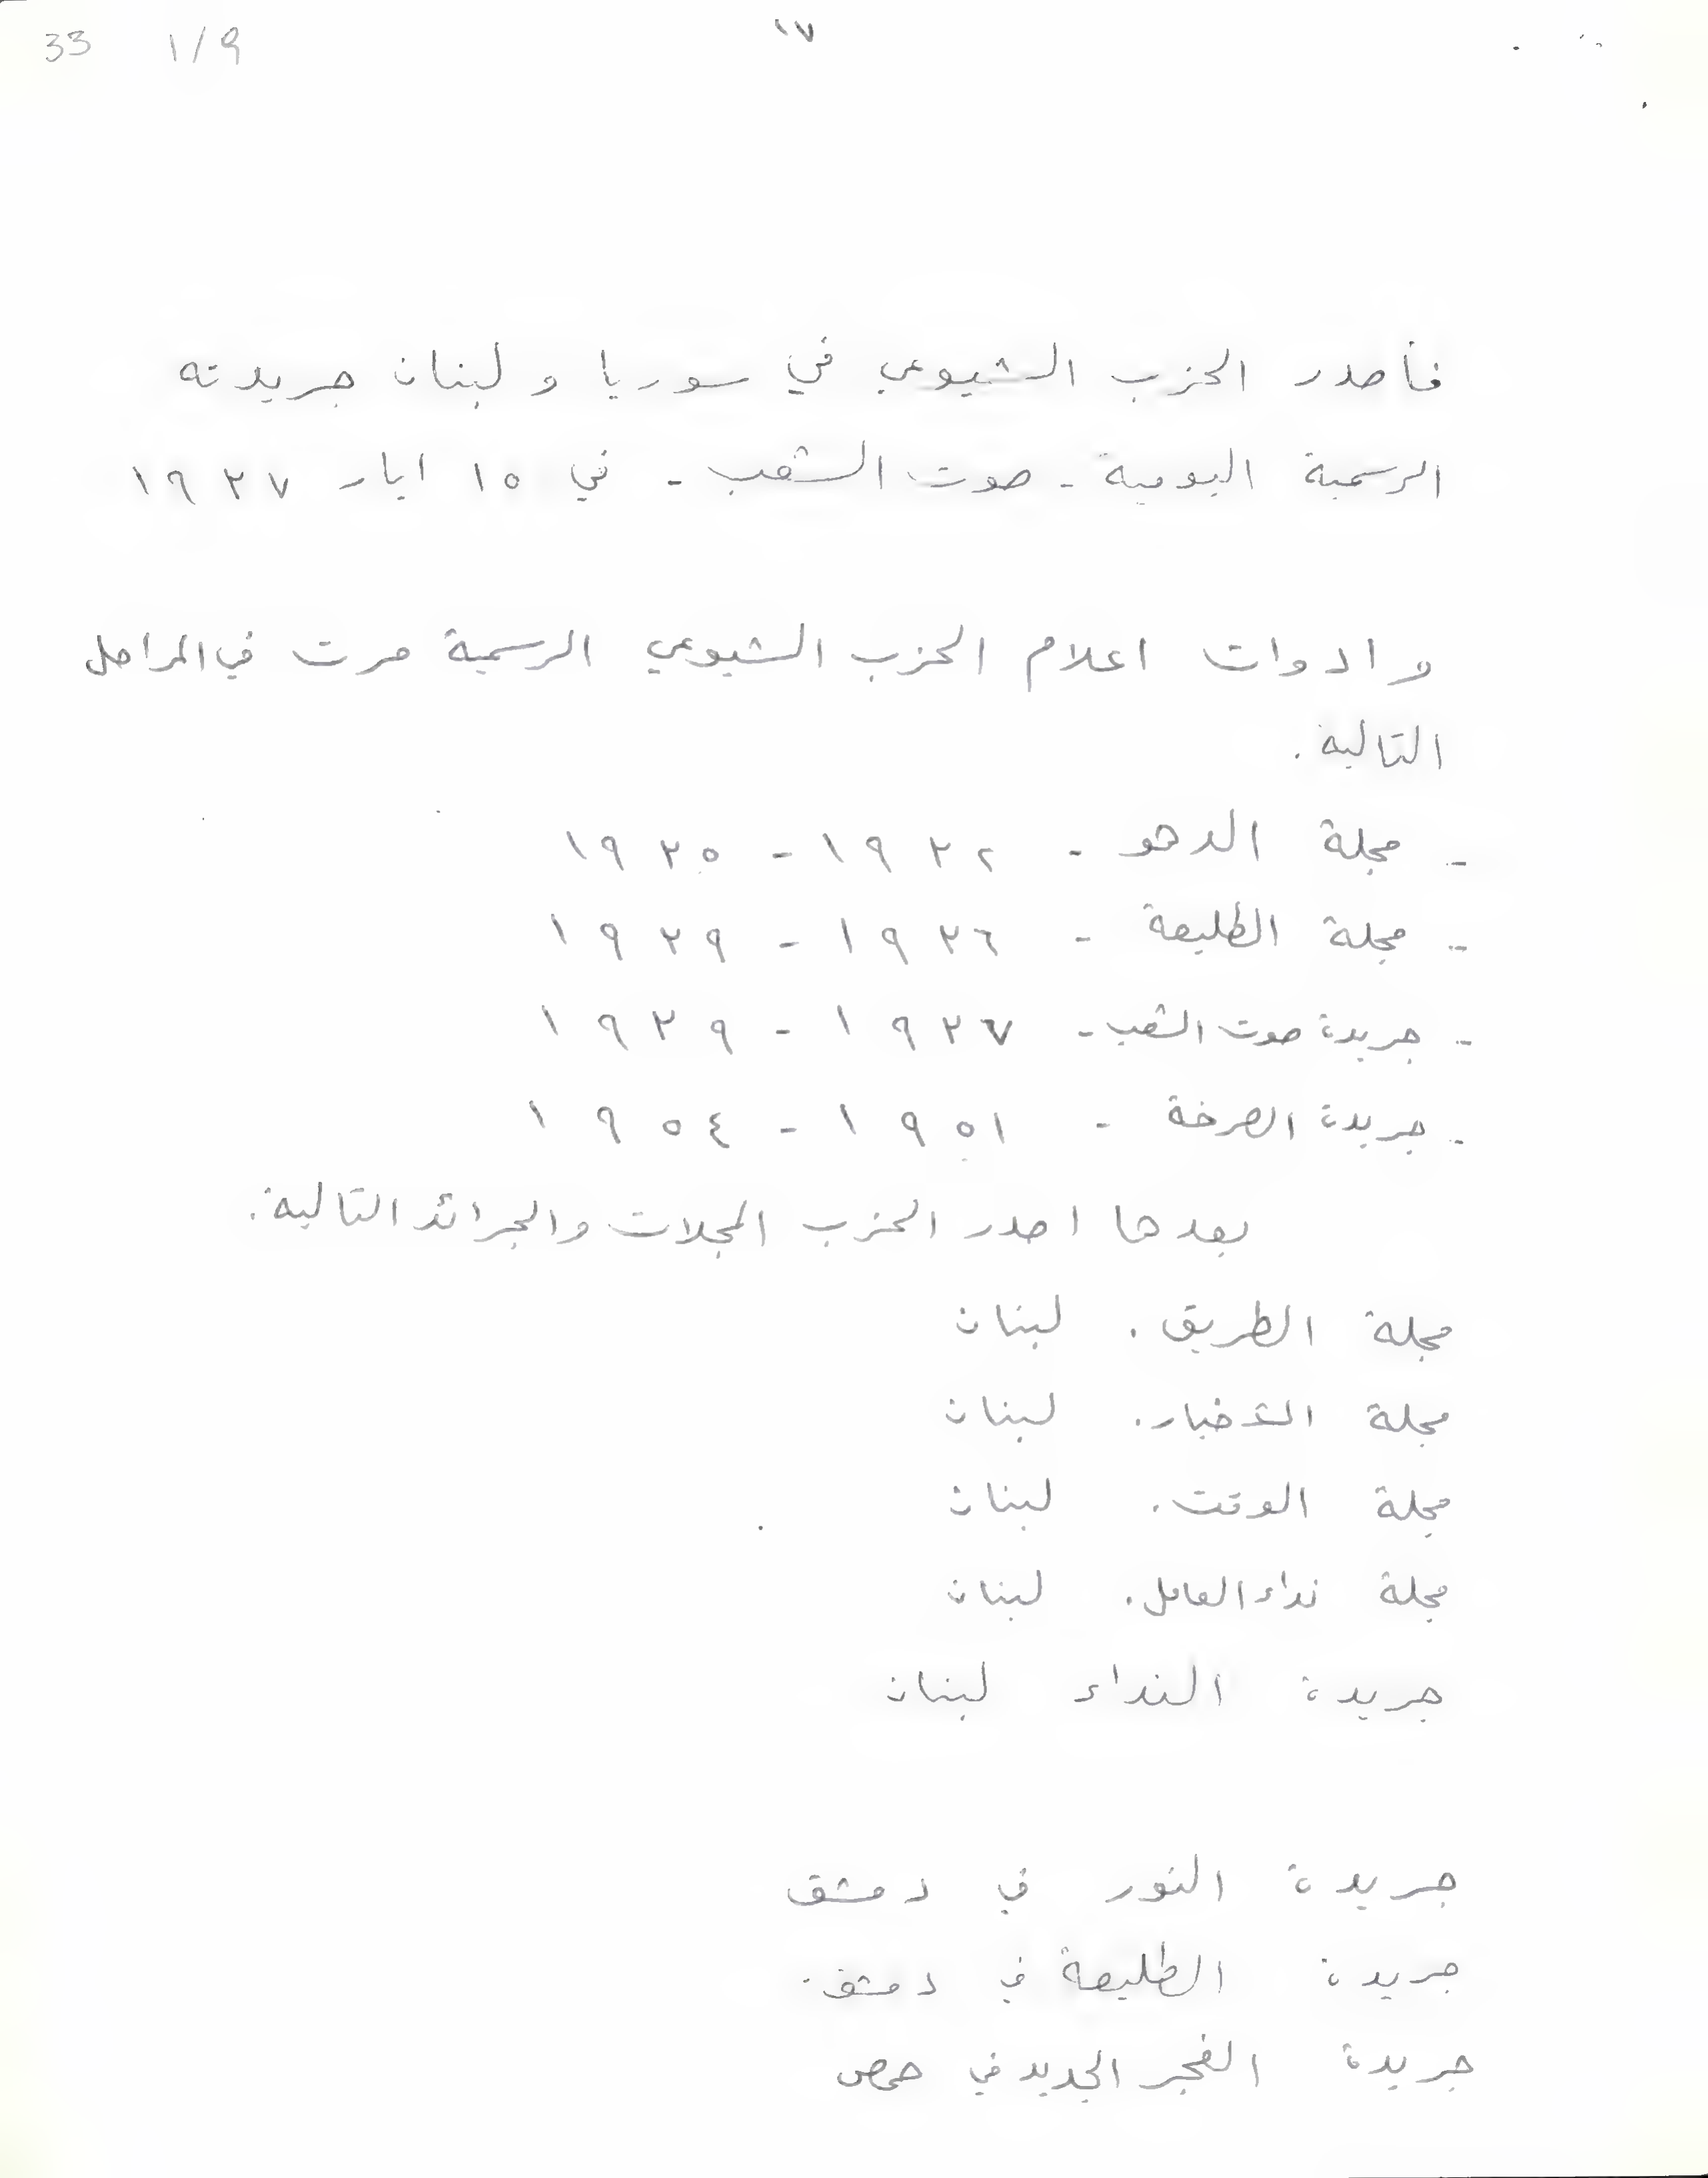 33 ١/٩
١٧
فأصدر الحزب الشيوعي في سوريا ولبنان جريدته
الرسمية اليومية - صوت الشعب - في ١٥ ايار ١٩٣٧
وادوات اعلام الحزب الشيوعي الرسمية مرت في المراحل
التالية.
- مجلة الدهو - ١٩٣٢ - ١٩٣٥
- مجلة الطليعة - ١٩٣٦ - ١٩٣٩
- جريدة صوت الشعب - ١٩٣٧ - ١٩٣٩
- جريدة الصرخة - ١٩٥١ - ١٩٥٤
بعدها اصدر الحزب المجلات والجرائد التالية:
مجلة الطريق. لبنان
مجلة الأخبار. لبنان
مجلة الوقت. لبنان
مجلة نداء العامل. لبنان
جريدة النداء لبنان
جريدة النور في دمشق
جريدة الطليعة في دمشق.
جريدة الفجر الجديد في حمص